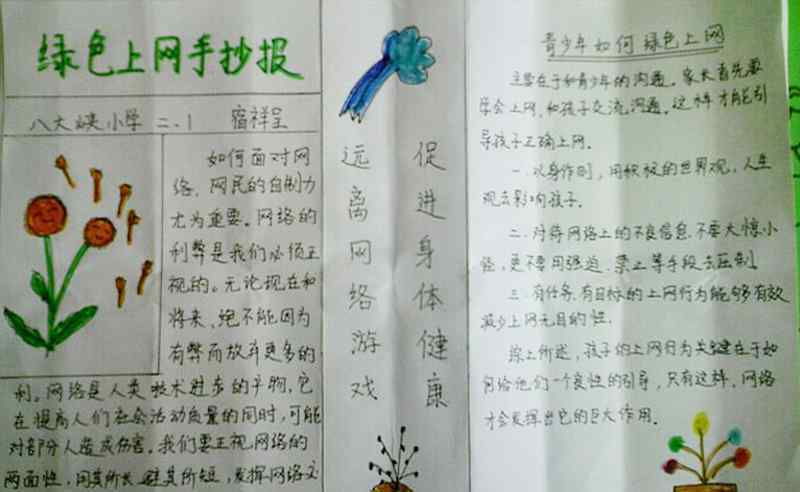 绿色上网手抄报
八大峡小学 二.1 宿祥呈
如何面对网
络，网民的自制力
尤为重要。网络的
利弊是我们必须正
视的。无论现在和
将来，绝不能因为
有弊而放弃更多的
利。网络是人类技术进步的产物，它
在提高人们社会活动质量的同时，可能
对部分人造成伤害。我们要正视网络的
两面性，用其所长，避其所短，发挥网络
远离网络游戏
促进身体健康
青少年如何绿色上网
主要在于和青少年的沟通。家长首先要
学会上网，和孩子交流沟通。这样才能引
导孩子正确上网。
一.以身作则，用积极的世界观，人生
观去影响孩子。
二.对待网络上的不良信息.不要大惊小
怪，更不要用强迫.禁止等手段去压制
三.有任务.有目标的上网行为能够有效
减少上网无目的性.
综上所述，孩子的上网行为关键在于如
何给他们一个良性的引导，只有这样，网络
才会发挥出它的巨大作用.